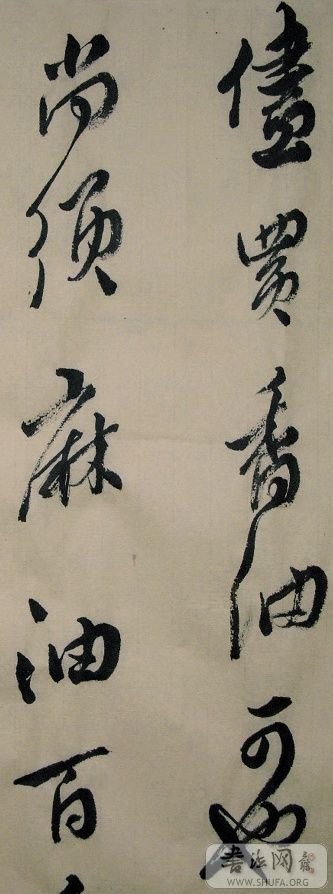 儘買香油可也
尚須麻油百
書法网
WWW.SHUFA.ORG